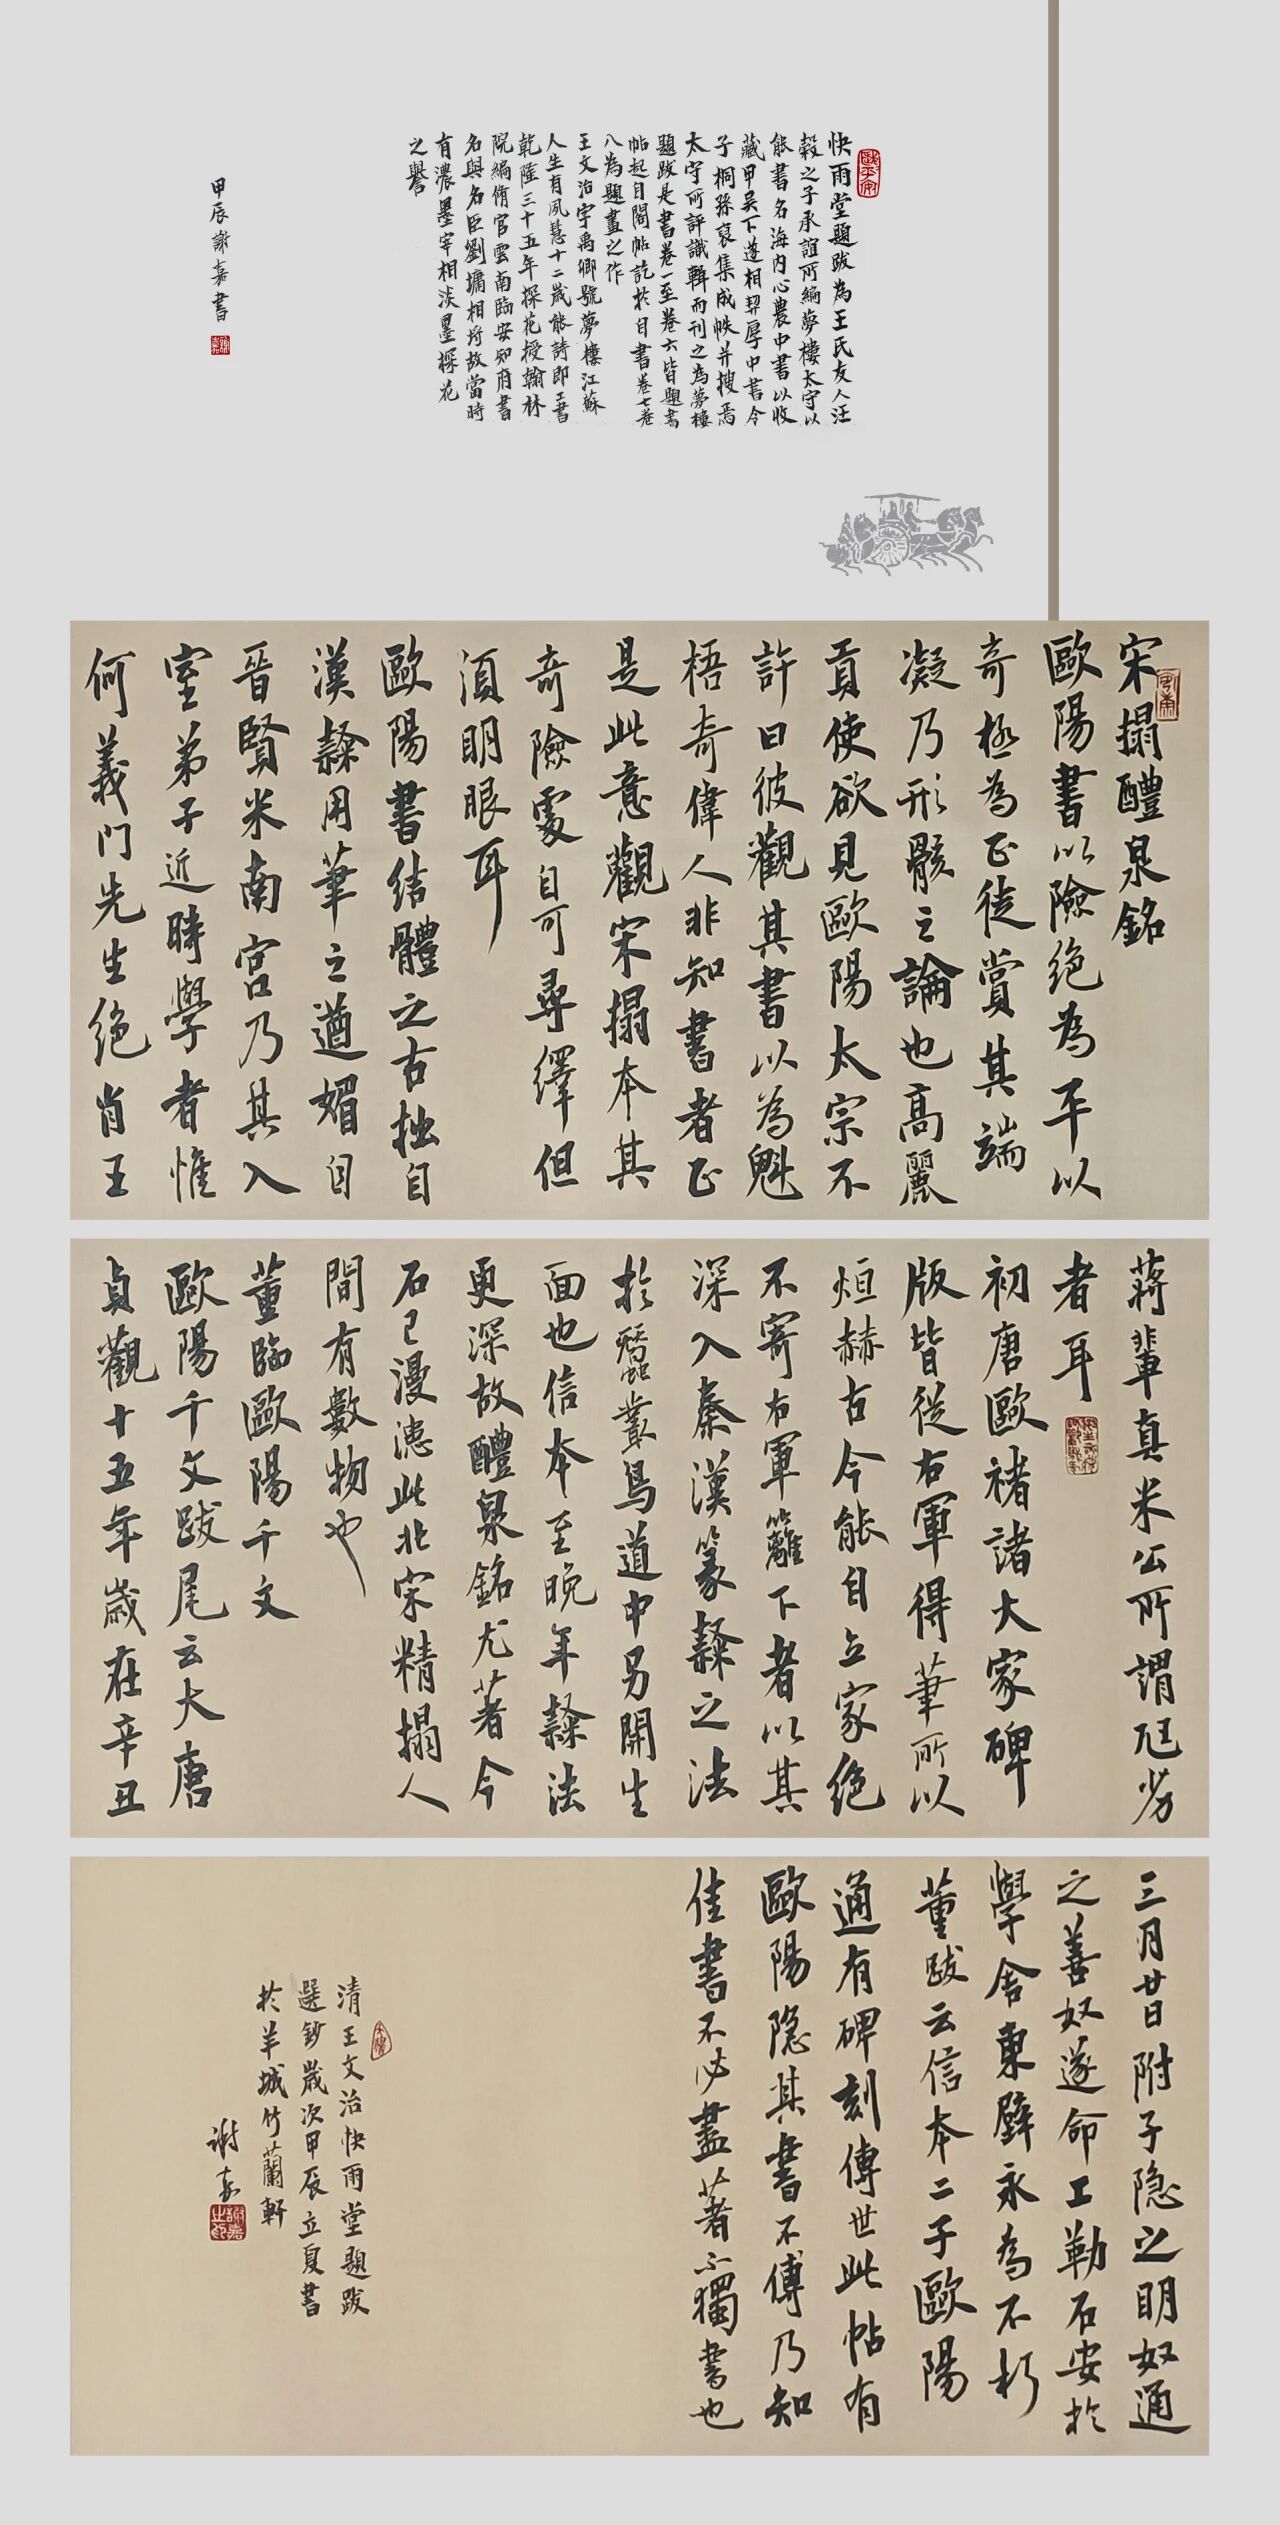 快雨堂題跋為王氏友人汪
穀之子承誼所編夢樓太守以
能書名海內心農中書以收
藏甲吴下遂相契厚中書令
子桐孫裒集成帙并搜焉
太守所評識輯而刊之為夢樓
題跋是書卷一至卷六皆題書
帖起自閣帖訖於自書卷七卷
八為題畫之作
王文治字禹卿號夢樓江蘇
人生有夙慧十二歲能詩即工書
乾隆三十五年探花授翰林
院編脩官雲南臨安知府書
名與名臣劉墉相埒故當時
有濃墨宰相淡墨探花
之譽
甲辰謝嘉書
宋搨醴泉銘
歐陽書以險絕為平以
奇極為正徒賞其端
凝乃形骸之論也高麗
貢使欲見歐陽太宗不
許曰彼觀其書以為魁
梧奇偉人非知書者正
是此意觀宋搨本其
奇險處自可尋繹但
須明眼耳
歐陽書結體之古拙自
漢隸用筆之遒媚自
晉賢米南宮乃其入
室弟子近時學者惟
何義門先生絕肖王
蔣輩真米公所謂尪劣
者耳
初唐歐褚諸大家碑
版皆從右軍得筆所以
烜赫古今能自立家絕
不寄右軍籬下者以其
深入秦漢篆隸之法
於蠶叢鳥道中另開生
面也信本至晚年隸法
更深故醴泉銘尤著今
石已漫漶此北宋精搨人
間有數物也
董臨歐陽千文
歐陽千文跋尾云大唐
貞觀十五年歲在辛丑
三月廿日附子隐之明奴通
之善奴遂命工勒石安於
學舍東壁永為不朽
董跋云信本二子歐陽
通有碑刻傳世此帖有
歐陽隐其書不傳乃知
佳書不必盡著不獨書也
清王文治快雨堂題跋
選鈔歲次甲辰立夏書
於羊城竹蘭軒
謝嘉
謝嘉之印